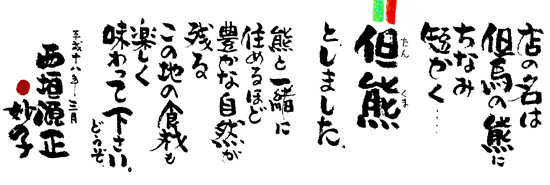 店の名は
但馬の熊に
ちなみ
短かく…
但熊
たん
くま
としました。
熊と一緒に
住めるほど
豊かな自然が
残る
この地の食材も
楽しく
味わって下さい。
どうぞ
平成十八年三月
西垣源正
妙子